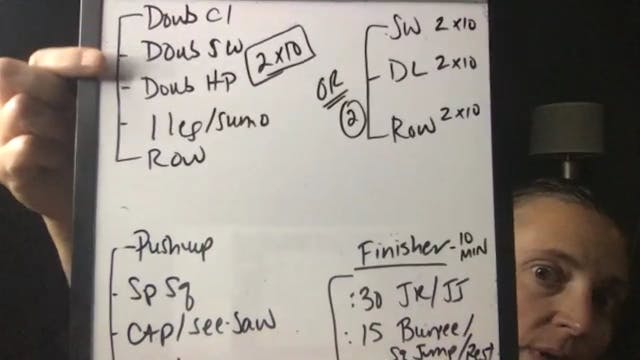 Doub Cl
Doub SW
Doub HP
1 leg/sumo
Row
2x10
OR
2
SW 2x10
DL 2x10
Row 2x10
Pushup
Sp Sq
C+P/See-Saw
Finisher-10 MIN
:30 JR/JJ
:15 Burpee/
Sq Jump/Rest